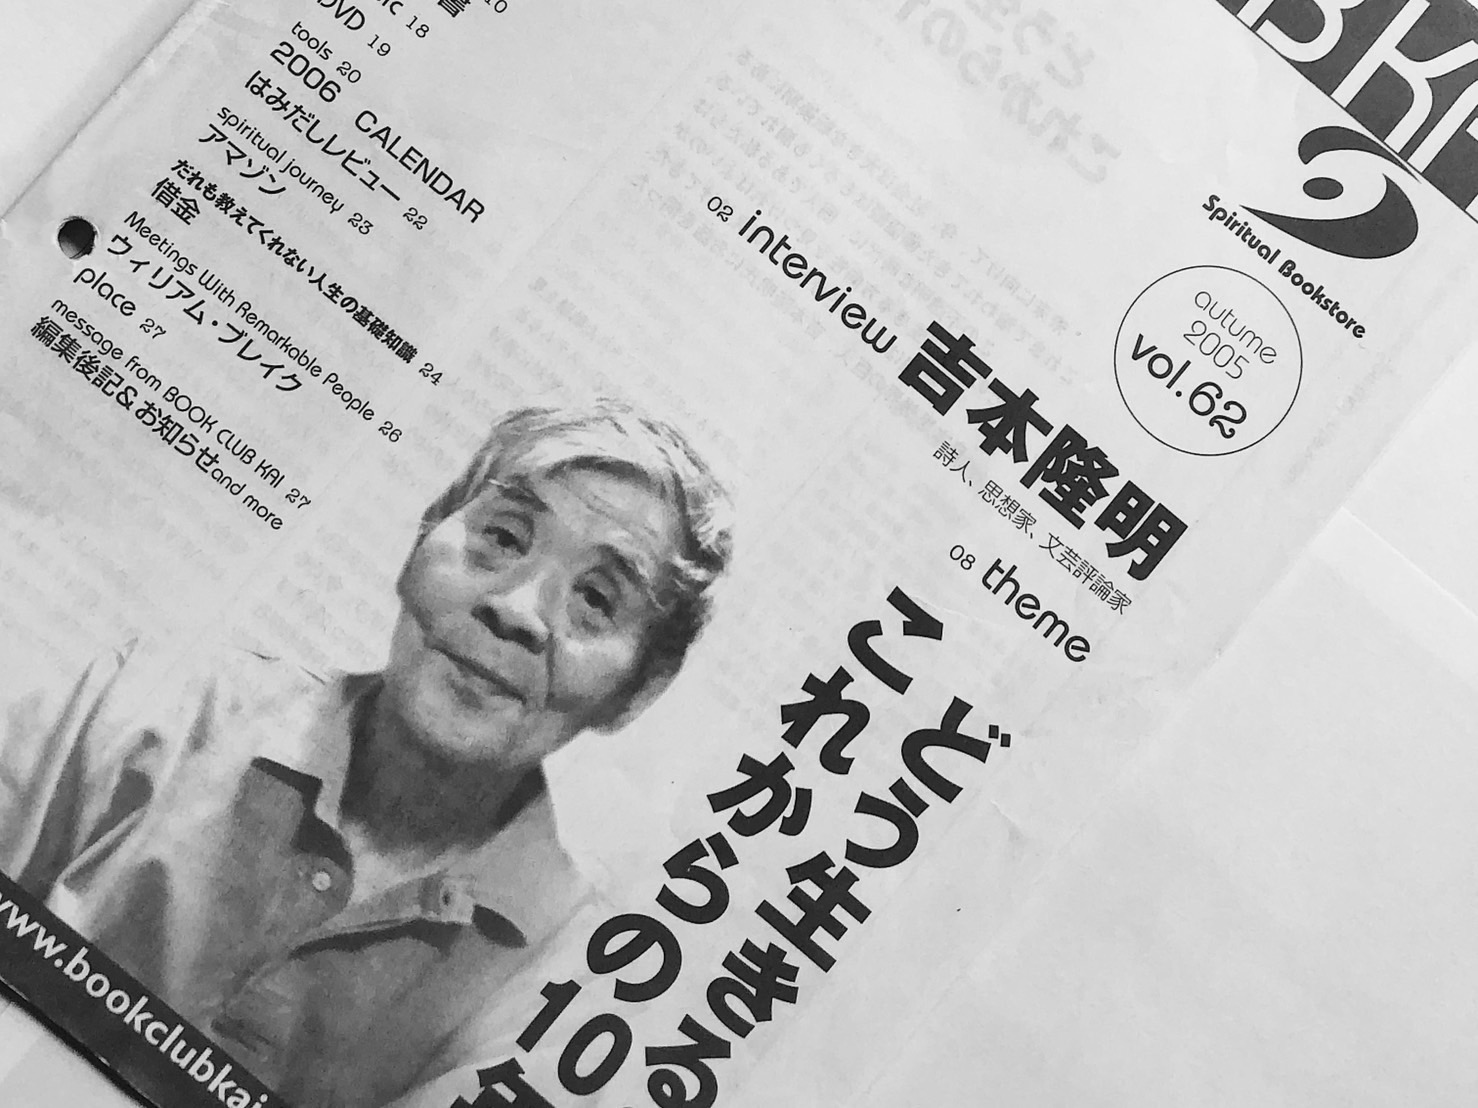 10
18
DVD 19
tools 20
2006 CALENDAR
はみだしレビュー 22
spiritual journey 23
アマゾン
だれも教えてくれない人生の基礎知識 24
借金
Meetings With Remarkable People 26
ウィリアム・ブレイク
place 27
message from BOOK CLUB KAI 27
編集後記&お知らせand more
Spiritual Bookstore
autume
2005
vol.62
02 interview 吉本隆明
詩人、思想家、文芸評論家
08 theme
どう生きる
これからの10年
www.bookclubkai